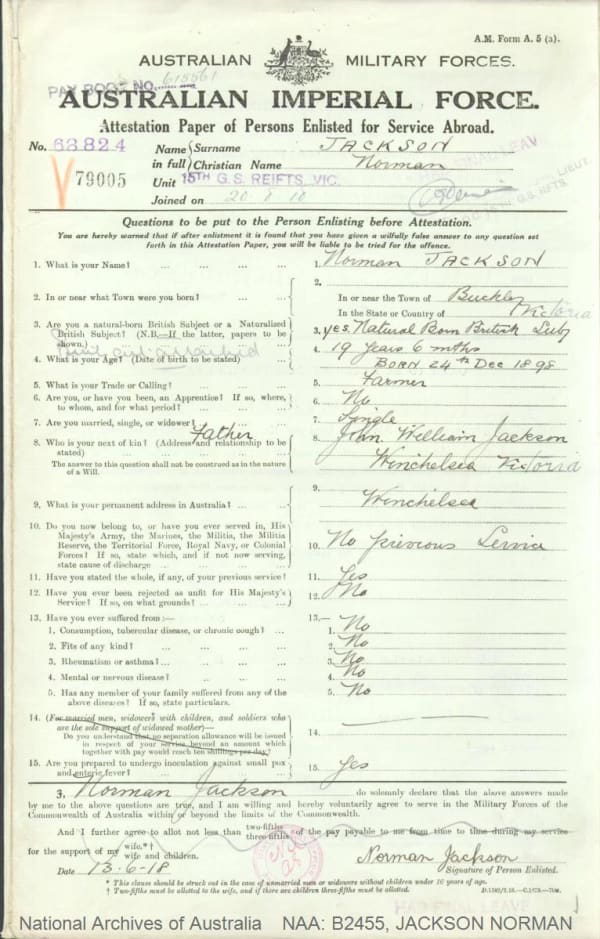 A.M. Form A. 5 (a).
AUSTRALIAN MILITARY FORCES.
PAY BOOK NO. 615561
AUSTRALIAN IMPERIAL FORCE.
Attestation Paper of Persons Enlisted for Service Abroad.
No. 63824 Name in full Surname JACKSON
Christian Name Norman
V79005 Unit 15TH G.S. REIFTS, VIC.
Joined on
HAD FINAL LEAV
LIEUT
O/C 15TH G.S. REIFTS.
Questions to be put to the Person Enlisting before Attestation.
You are hereby warned that if after enlistment it is found that you have given a wilfully false answer to any question set
forth in this Attestation Paper, you will be liable to be tried for the offence.
1. What is your Name? ... ... ... ... 1. Norman JACKSON
2. In or near what Town were you born? ... ... 2. In or near the Town of Buckley
In the State or Country of Victoria
3. Are you a natural-born British Subject or a Naturalized
British Subject? (N.B.—If the latter, papers to be
shown.) 3. yes. Natural Born British Subj
4. What is your Age? (Date of birth to be stated) ... 4. 19 years 6 mths
BORN 24th Dec 1898
5. What is your Trade or Calling? ... ... ... 5. Farmer
6. Are you, or have you been, an Apprentice? If so, where,
to whom, and for what period? ... ... 6. No
7. Are you married, single, or widower? ... 7. Single
8. Who is your next of kin? (Address and relationship to be
stated) ... Father 8. John William Jackson
The answer to this question shall not be construed as in the nature
of a Will. Winchelsea Victoria
9. What is your permanent address in Australia? ... ... 9. Winchelsea
10. Do you now belong to, or have you ever served in, His
Majesty's Army, the Marines, the Militia, the Militia
Reserve, the Territorial Force, Royal Navy, or Colonial
Forces? If so, state which, and if not now serving,
state cause of discharge ... ... ... 10. No previous Service
11. Have you stated the whole, if any, of your previous service? 11. Yes
12. Have you ever been rejected as unfit for His Majesty's
Service? If so, on what grounds? ... ... 12. No
13. Have you ever suffered from :— 13.—
1. Consumption, tubercular disease, or chronic cough? ... 1. No
2. Fits of any kind? ... ... ... ... 2. No
3. Rheumatism or asthma? ... ... ... 3. No
4. Mental or nervous disease? ... ... ... 4. No
5. Has any member of your family suffered from any of the
above diseases? If so, state particulars. 5. No
14. (For married men, widowers with children, and soldiers who
are the sole support of widowed mother)—
Do you understand that no separation allowance will be issued
in respect of your service beyond an amount which
together with pay would reach ten shillings per day? 14.
15. Are you prepared to undergo inoculation against small pox
and enteric fever? ... ... ... 15. Yes
3. Norman Jackson do solemnly declare that the above answers made
by me to the above questions are true, and I am willing and hereby voluntarily agree to serve in the Military Forces of the
Commonwealth of Australia within or beyond the limits of the Commonwealth.
And I further agree to allot not less than two-fifths three-fifths of the pay payable to me from time to time during my service
for the support of my wife.*†
wife and children.
Norman Jackson
Date 13-6-18 Signature of Person Enlisted.
* This clause should be struck out in the case of unmarried men or widowers without children under 16 years of age.
† Two-fifths must be allotted to the wife, and if there are children three-fifths must be allotted.
HAD FINAL LEAVE
National Archives of Australia NAA: B2455, JACKSON NORMAN